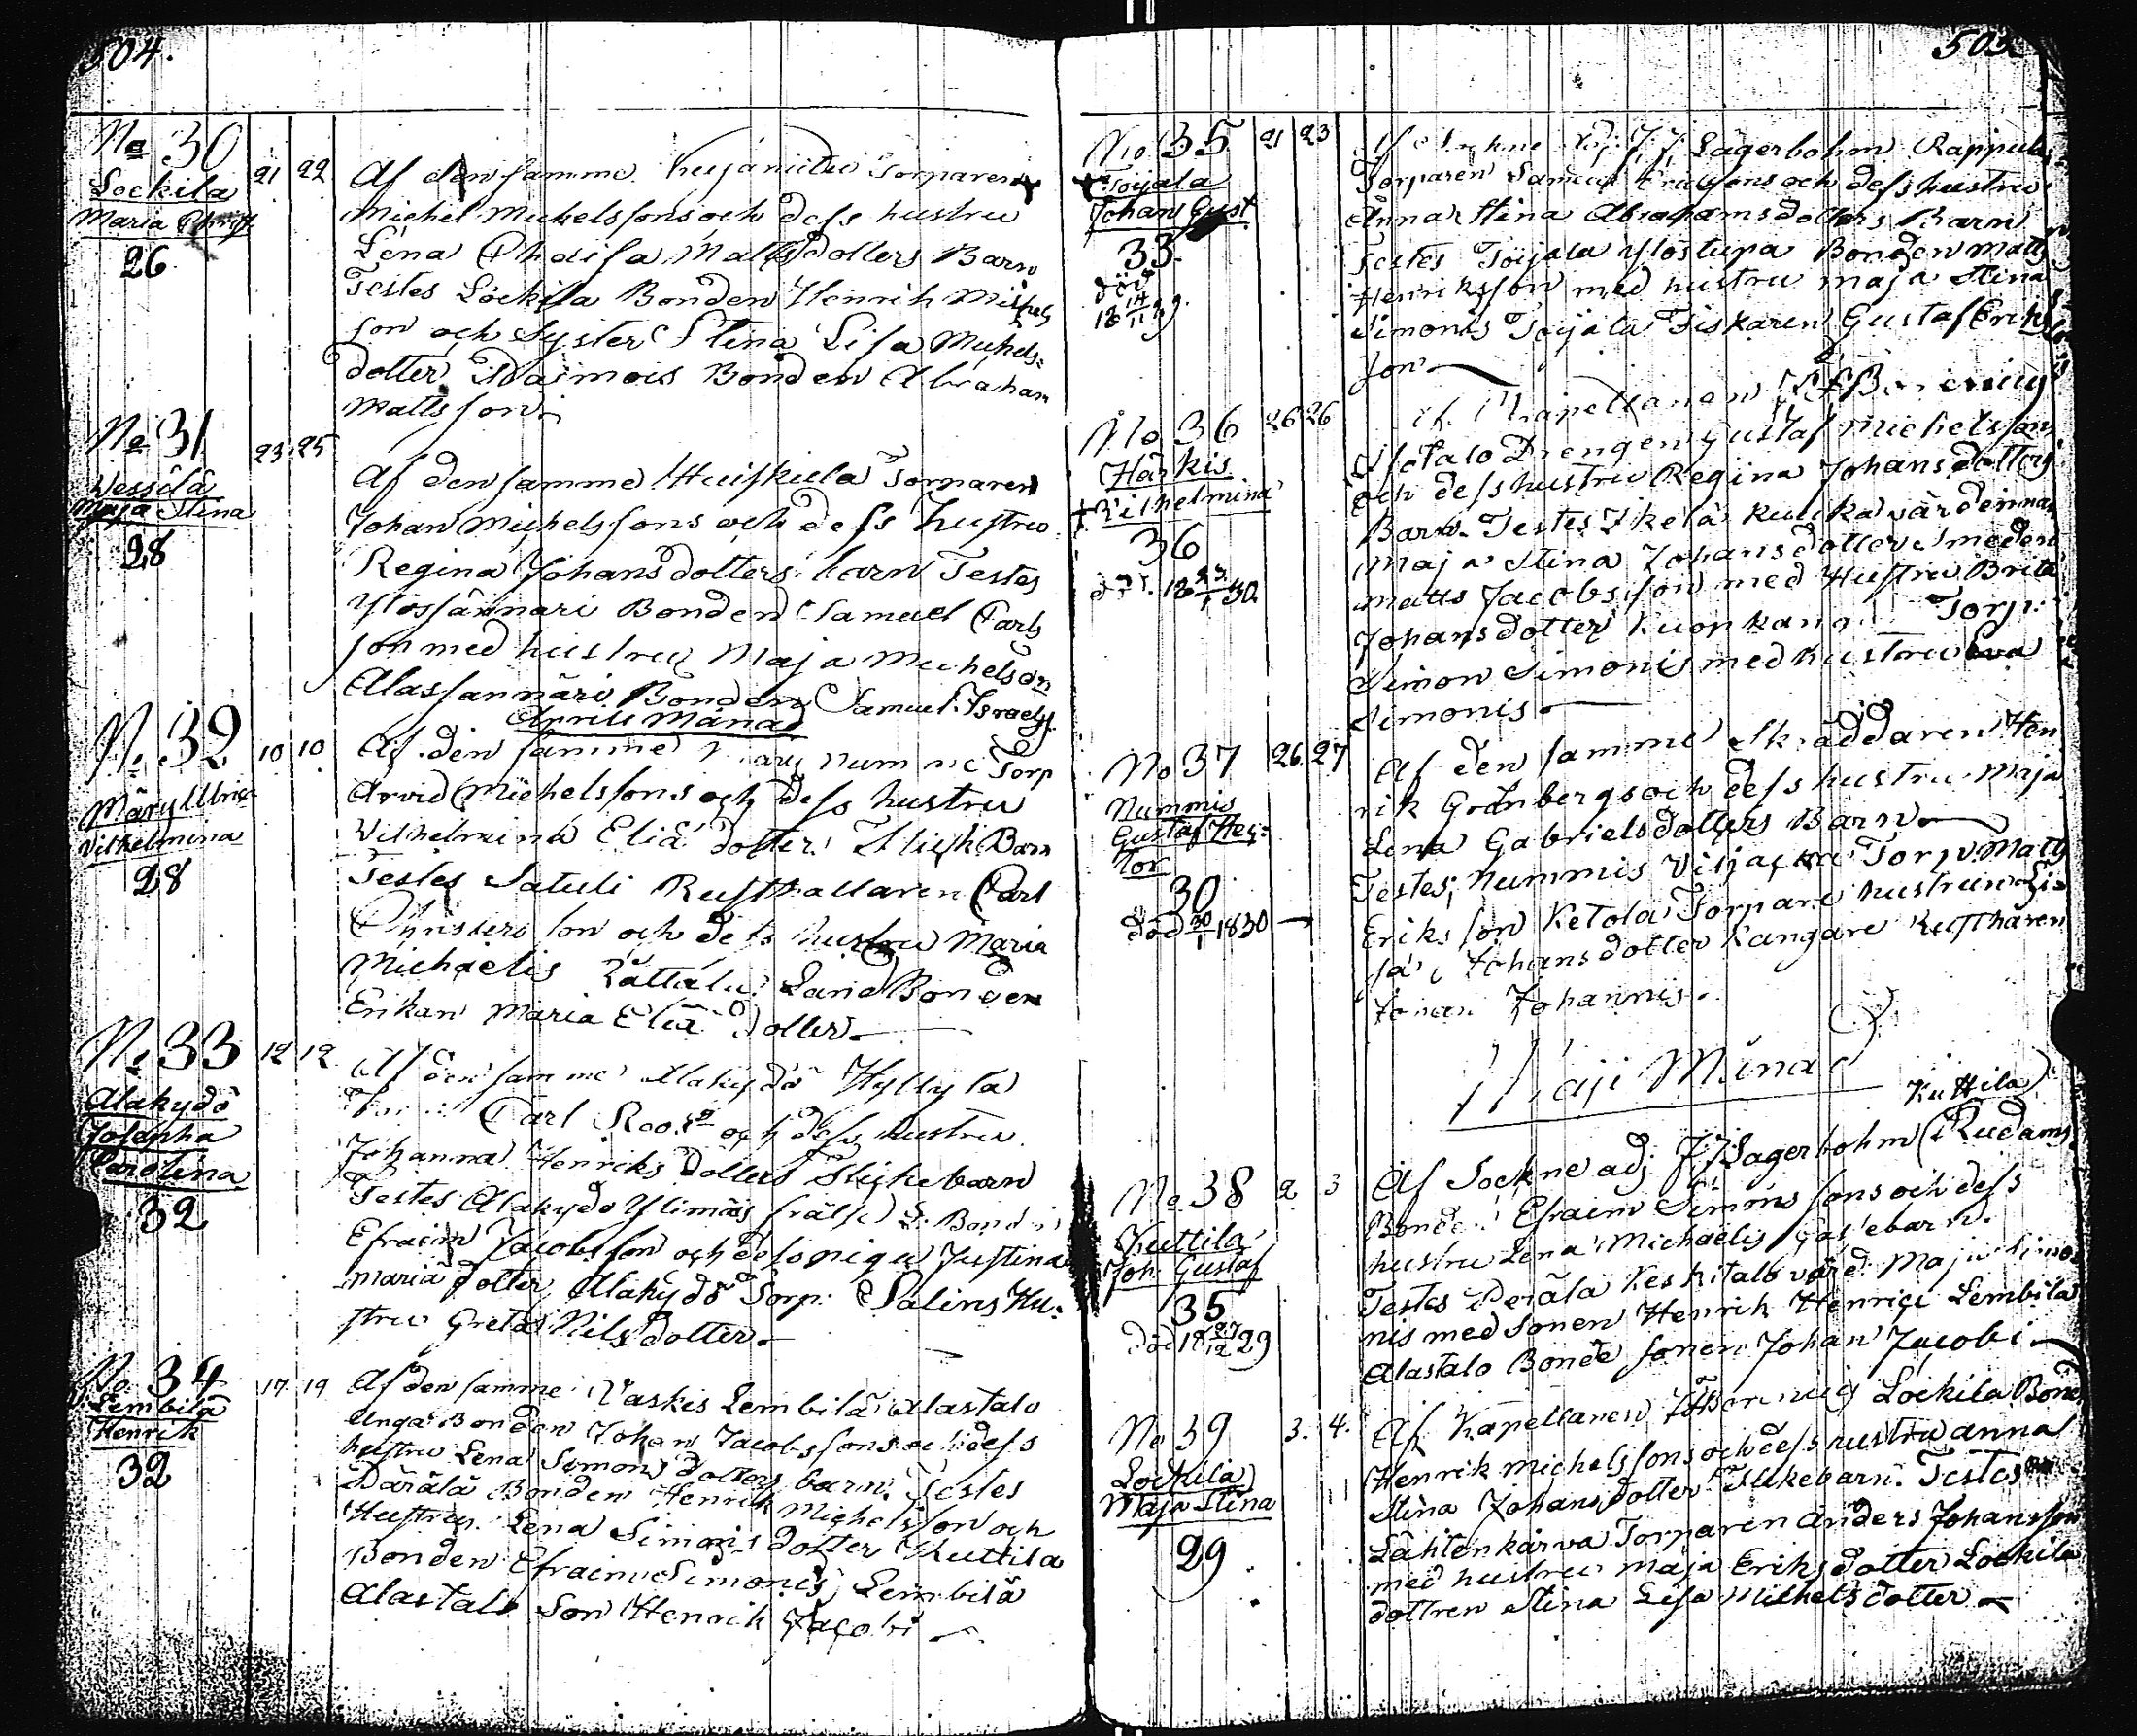 504.
No 30
Lockila
Maria Christ
26
21 22
Af den samme Torparen
Michel Michelssons och dess hustru
Lena Chaisa Matts dotters Barn
Testes Lockila Bonden Henrik Michels
son och Syster Stina Lisa Michels=
dotter Bonden Abraham
Mattsson
No 31
Wessilä
Maja Stina
28
23 25
Af den samme Huiskula Torparen
Johan Michelssons och dess hustru
Regina Johansdotters barn Testes
Ylossännäri Bonden Samuel Carls
son med hustru Maja Michelsdr
Alassannäri Bonden Samuel Israelss.
Aprils Månad
No 32
Märy Ulrica
Vilhelmina
28
10 10
Af den samme Torp
Arvid Michelssons och dess hustru
Vilhelmina Eliä dotter Flick Barn
Testes Satuli Rusthållaren Carl
Christersson och dess hustru Maria
Michaelis Land Bonden
Erikan Maria Eliä Dotter
No 33
Alakydö
Josepha
Carolina
32
12 12
Af den samme Alakydö Hyllylä
Carl Roos och dess hustru
Johanna Henriks Dotters Flickebarn
Testes Alakydö Ylimäs frälse L. Bonden
Efraim Jacobsson och dess piga Justina
Maria dotter, Alakydö Torp. Salins Hu=
stru Greta Nils dotter
No 34
Lembilä
Henrik
32
17 19
Af den samme Vaskis Lembilä Alastalo
unga Bonden Johan Jacobssons och dess
hustru Lena Simons dotters barn. Testes
Därälä Bonden Henrik Michelsson och
Hustru Lena Simonis dotter Kuttila
Bonden Efraim Simonis, Lembilä
Alastalo Son Henrik Jacobi
505.
No 35
Toijala
Johan Gust
33.
död
18 14/11 29.
21 23
Af Sockne Adj. J. J. Lagerbohm
Torparen Samuel och dess hustru
Anna Stina Abrahamsdotters Barn
Testes Toijala Ylöstupa Bonden Matts
Henriksson med hustru Maja Stina
Simonis Toijala Fiskaren Gustaf Eriks
son
No 36
Härkis
Vilhelmina
36
död. 18 23/1 30.
26 26
Af Chapellanen
Isotalo Drengen Gustaf Michelssons
och dess hustru Regina Johansdotters
Barn. Testes Ikela värdinnan
Maja Stina Johansdotter Smeden
Matts Jacobsson med Hustru Brita
Johansdotter Torp.
Simon Simonis med hustru Eva
Simonis
No 37
Nummis
Gustaf Hec=
tor
30
död 20/1 1830
26 27
Af den samme Skräddaren Hen
rik Grönbergs och dess hustru Maja
Lena Gabrielsdotters Barn
Testes; Nummis Torp. Matts
Eriksson Ketola Torpare hustrun Li=
sa Johansdotter Kangare Rusthären
Johan Johannis.
Maji Månad
No 38
Kuttila
Joh. Gustaf
35
död 18 27/12 29
2 3
Kuttila
Af Sockne adj J J Lagerbohm
Bonden Efraim Simonssons och dess
hustru Lena Michaelis Gossebarn.
Testes Perälä Keskitalo värd. Maja Simo
nis med Sonen Henrik Henrici Lembilä
Alastalo Bonde sonen Johan Jacobi
No 39
Lockila
Maja Stina
29
3. 4.
Af Kapellanen Lockila Bond
Henrik Michelssons och dess hustru Anna
Stina Johans dotter Flickebarn. Testes
Lähtenkärva Torparen Anders Johansson
med hustru Maja Eriksdotter Lockila
dottren Stina Lisa Michelsdotter